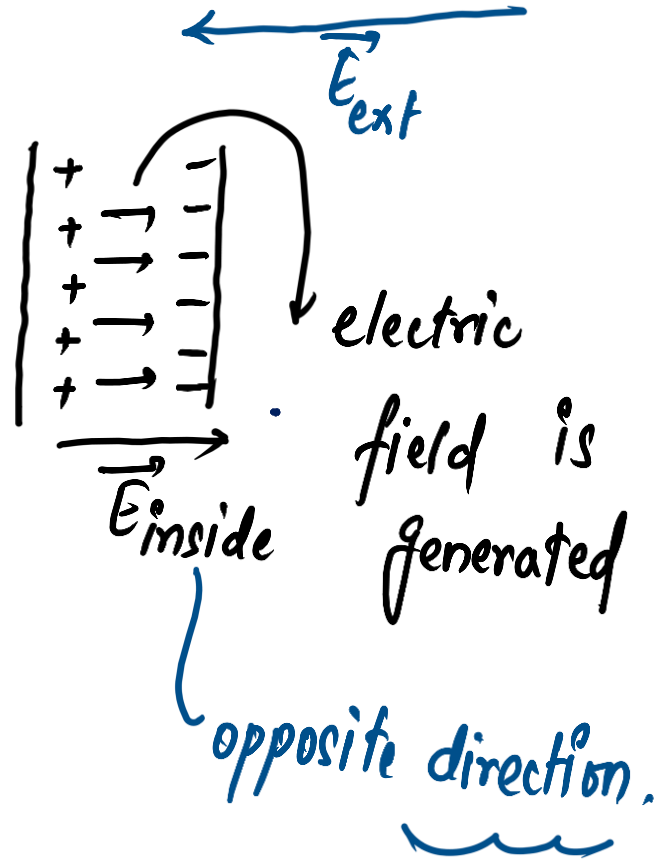 E⃗ext
+ −
+ −
+ −
+ −
+ −
−
electric
field is
generated
E⃗inside
opposite direction.